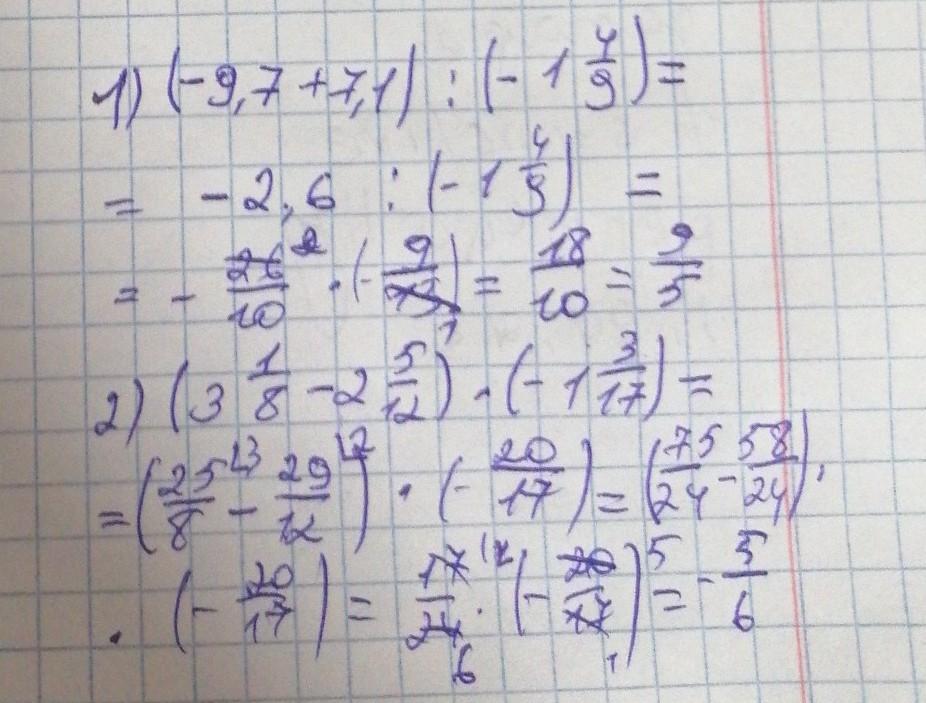 1) (-9,7 + 7,1) : (- 1 4/9) =
= -2,6 : (- 1 4/9) =
= - 26/10 2 · (- 9/13 1) = 18/10 = 9/5
2) (3 1/8 - 2 5/12) · (- 1 3/17) =
= (25/8 3 - 29/12 2) · (- 20/17) = (75/24 - 58/24) ·
· (- 20/17) = 17/24 6 · (- 20/17 1) 5 = - 5/6